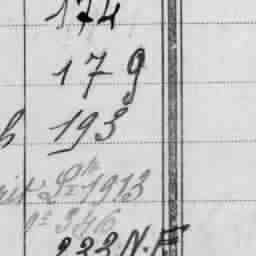 174
179
h 193
rit Lre 1913
nº 346
232 N.F